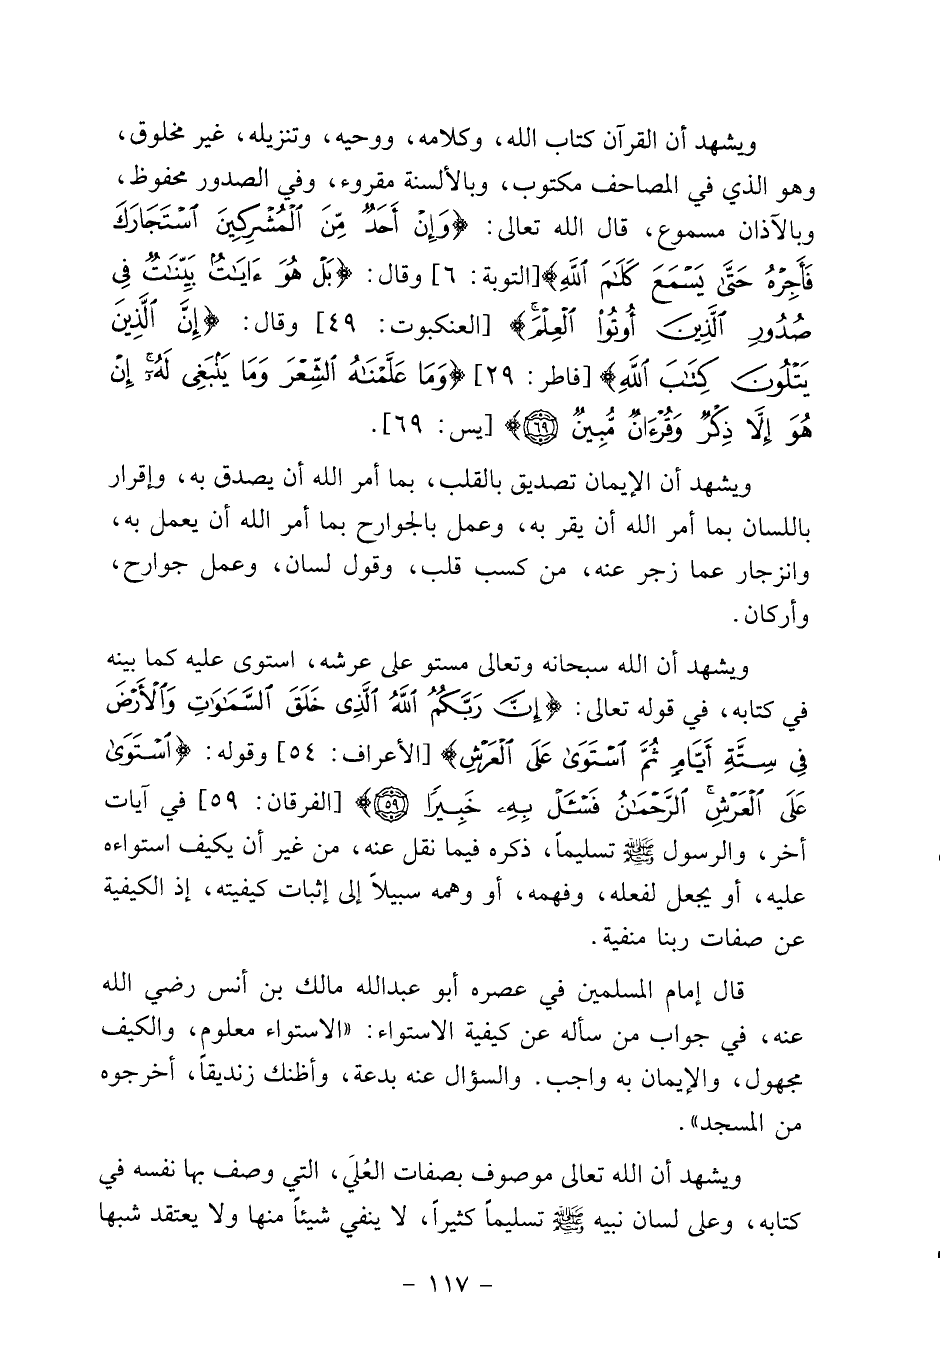 ويشهد أن القرآن كتاب الله، وكلامه، ووحيه، وتنزيله، غير مخلوق،
وهو الذي في المصاحف مكتوب، وبالألسنة مقروء، وفي الصدور محفوظ،
وبالآذان مسموع، قال الله تعالى: ﴿وَإِنْ أَحَدٌ مِّنَ ٱلْمُشْرِكِينَ ٱسْتَجَارَكَ
فَأَجِرْهُ حَتَّىٰ يَسْمَعَ كَلَٰمَ ٱللَّهِ﴾[التوبة: ٦] وقال: ﴿بَلْ هُوَ ءَايَٰتٌۢ بَيِّنَٰتٌ فِى
صُدُورِ ٱلَّذِينَ أُوتُوا۟ ٱلْعِلْمَ ۚ﴾ [العنكبوت: ٤٩] وقال: ﴿إِنَّ ٱلَّذِينَ
يَتْلُونَ كِتَٰبَ ٱللَّهِ﴾ [فاطر: ٢٩] ﴿وَمَا عَلَّمْنَٰهُ ٱلشِّعْرَ وَمَا يَنۢبَغِى لَهُۥٓ ۚ إِنْ
هُوَ إِلَّا ذِكْرٌ وَقُرْءَانٌ مُّبِينٌ ٦٩﴾ [يس: ٦٩].
ويشهد أن الإيمان تصديق بالقلب، بما أمر الله أن يصدق به، وإقرار
باللسان بما أمر الله أن يقر به، وعمل بالجوارح بما أمر الله أن يعمل به،
وانزجار عما زجر عنه، من كسب قلب، وقول لسان، وعمل جوارح،
وأركان.
ويشهد أن الله سبحانه وتعالى مستو على عرشه، استوى عليه كما بينه
في كتابه، في قوله تعالى: ﴿إِنَّ رَبَّكُمُ ٱللَّهُ ٱلَّذِى خَلَقَ ٱلسَّمَٰوَٰتِ وَٱلْأَرْضَ
فِى سِتَّةِ أَيَّامٍ ثُمَّ ٱسْتَوَىٰ عَلَى ٱلْعَرْشِ﴾ [الأعراف: ٥٤] وقوله: ﴿ٱسْتَوَىٰ
عَلَى ٱلْعَرْشِ ۚ ٱلرَّحْمَٰنُ فَسْـَٔلْ بِهِۦ خَبِيرًا ٥٩﴾ [الفرقان: ٥٩] في آيات
أخر، والرسول ﷺ تسليماً، ذكره فيما نقل عنه، من غير أن يكيف استواءه
عليه، أو يجعل لفعله، وفهمه، أو وهمه سبيلاً إلى إثبات كيفيته، إذ الكيفية
عن صفات ربنا منفية.
قال إمام المسلمين في عصره أبو عبدالله مالك بن أنس رضي الله
عنه، في جواب من سأله عن كيفية الاستواء: «الاستواء معلوم، والكيف
مجهول، والإيمان به واجب. والسؤال عنه بدعة، وأظنك زنديقاً، أخرجوه
من المسجد».
ويشهد أن الله تعالى موصوف بصفات العُلَى، التي وصف بها نفسه في
كتابه، وعلى لسان نبيه ﷺ تسليماً كثيراً، لا ينفي شيئاً منها ولا يعتقد شبها
- ١١٧ -